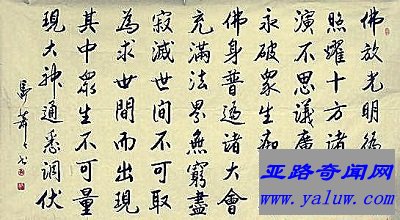 佛放光明
照耀十方諸
演不思議廣
永破衆生痴
佛身普遍諸大會
充滿法界無窮盡
寂滅世間不可取
為求世間而出現
其中衆生不可量
現大神通悉調伏
亚路奇闻网
www.yaluw.com